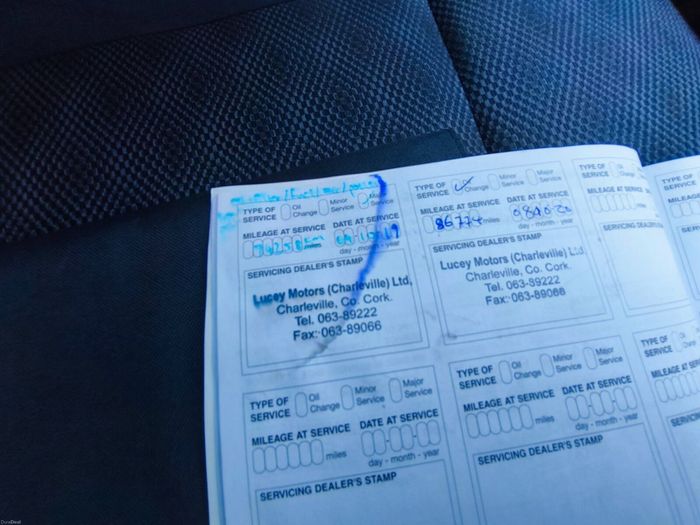 TYPE OF SERVICE Oil Change Minor Service Service
MILEAGE AT SERVICE DATE AT SERVICE
day - month - year
SERVICING DEALER'S STAMP
Lucey Motors (Charleville) Ltd,
Charleville, Co. Cork.
Tel. 063-89222
Fax: 063-89066
TYPE OF SERVICE Change Minor Service Major Service
MILEAGE AT SERVICE DATE AT SERVICE
86774 miles
day - month - year
SERVICING DEALER'S STAMP
Lucey Motors (Charleville) Ltd.
Charleville, Co. Cork.
Tel. 063-89222
Fax: 063-89066
TYPE OF SERVICE
MILEAGE AT
SERVICING DEALER'S
TYPE OF SERVICE Oil Change Minor Service Major Service
MILEAGE AT SERVICE DATE AT SERVICE
miles day - month - year
SERVICING DEALER'S STAMP
TYPE OF SERVICE Oil Change Minor Service Major Service
MILEAGE AT SERVICE DATE AT SERVICE
miles day - month - year
SERVICING DEALER'S STAMP
TYPE OF SERVICE
MILEAGE AT
DoneDeal